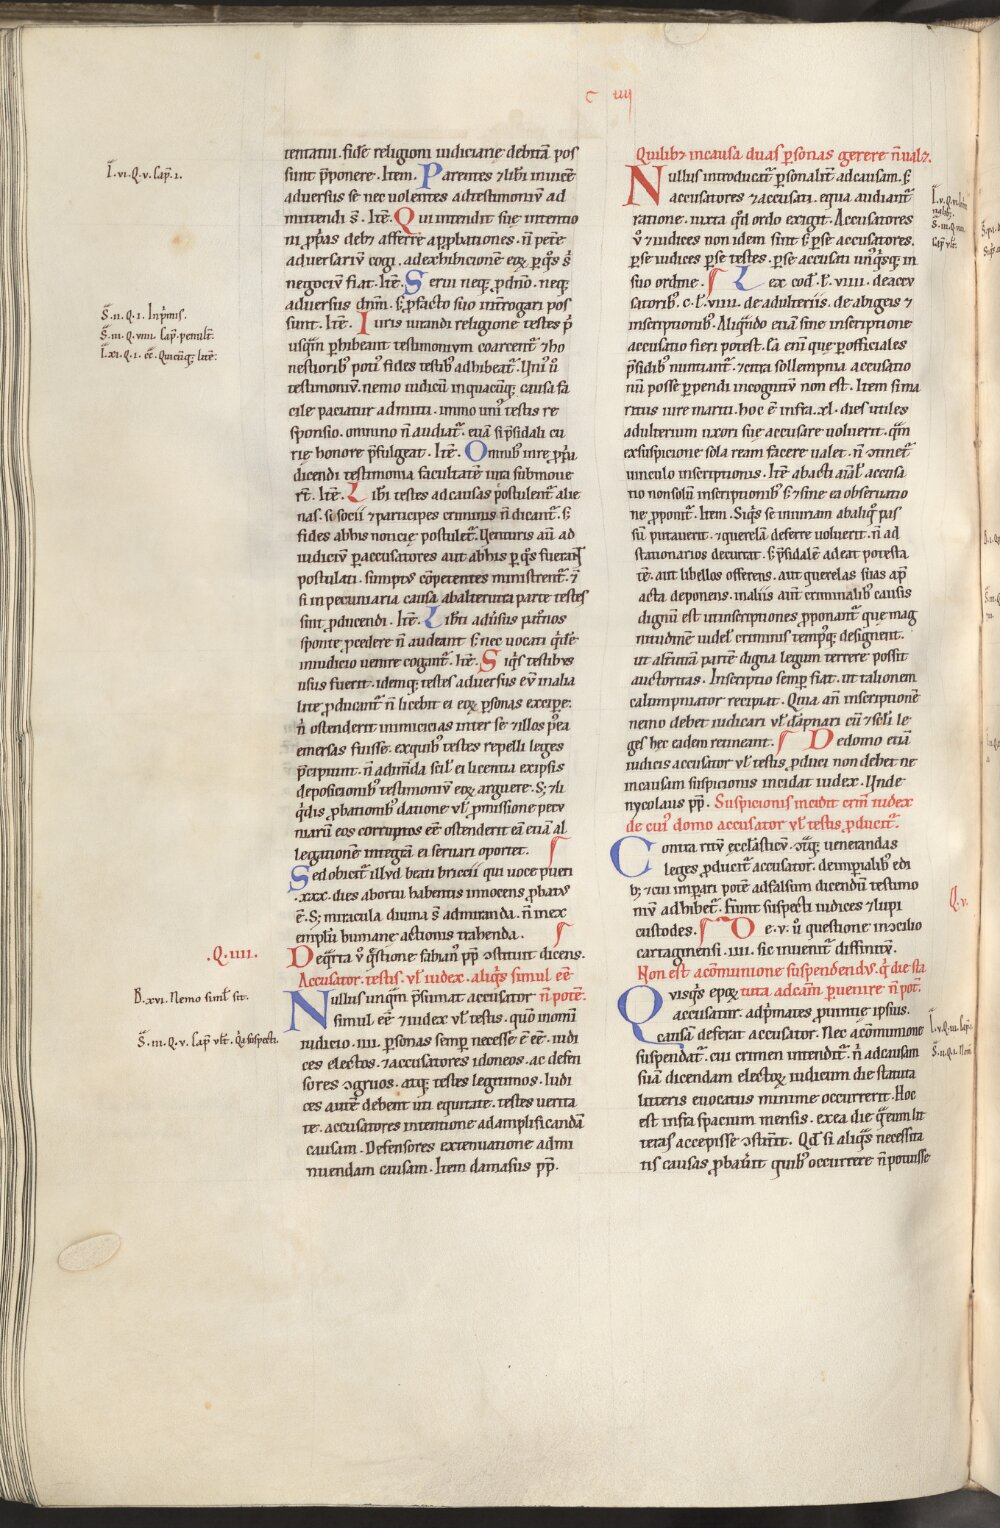 C IIII
tentatui. fidē religioni iudiciarie debitā pos
sunt p̄ponere. Itē. Parentes ⁊ libi inuicē
aduersus se nec uolentes ad testimoniū ad
mittendi s̄. Itē. Qui intendit sue intentio
ni ꝓpͥas deb⁊ afferre apꝓbationes. n̄ pete
aduersariū cogi. ad exhibicionē eoꝝ ꝑ qͦs s̄
negociū fiat. Itē. Serui neqꝫ ꝓ dn̄o. neqꝫ
aduersus dn̄m. s̄ ꝓ facto suo int̄rogari pos
sunt. Itē. Iuris iurandi religione testes p̄
usqͣm ꝑhibeant testimonium coarcent̄ ⁊ ho
nestioribꝰ potiꝰ fides testibꝰ adhibeat̄. Uniꝰ ū
testimoniū. nemo iudicū in quacūqꝫ causa fa
cile paciatur admitti. immo uniꝰ testis re
sponsio. omnino n̄ audiat̄. etiā si p̄sidali cu
rie honore p̄fulgeat. Itē. Omnibꝰ in re ꝓpͥa
dicendi testimonia facultatē iura submoue
rt̄. Itē. Libi testes ad causas postulent̄ alie
nas. si socii ⁊ participes criminis n̄ dicant̄. s̄
fides ab his noticie postulet̄. Uenturis aū ad
iudiciū ꝑ accusatores aut ab his ꝑ qͦs fuerint
postulati. sumptꝰ cōpetentes ministrent̄. ⁊
si in pecuniaria causa ab alterutra parte testes
sint ꝓducendi. Itē. Liberti adūsus patͦnos
sponte ꝓcedere n̄ audeant s̄ nec uocati qͥdē
in iudicio uenire cogant̄. Itē. Siqͥs testibus
usus fuerit. idemqꝫ testes aduersus eū in alia
lite ꝓducant̄ n̄ licebit ei eoꝝ ꝑsonas excipe.
nͥ ostenderit inimicicias inter se ⁊ illos pꝰea
emersas fuisse. ex quibꝰ testes repelli leges
p̄cipiunt. n̄ adimēda scil̄ ei licentia ex ipsis
deposicionibꝰ testimoniū eoꝝ arguere. Sꝫ ⁊ li
qͥdis ꝓbationibꝰ datione ul̄ ꝓmissione pecu
niarū eos corruptos eē ostenderit eā etiā al
legationē integrā ei seruari oportet.
Sed obicit̄ illud beati bricii qui uoce pueri
.xxx. dies ab ortu habentis innocens ꝓbatus
ē. Sꝫ miracula diuina s̄ admiranda. n̄ in ex
emplū humane actionis trahenda.
De qͣrta ū qͣ̄stione fabianꝰ pp̄ ↄstituit dicens.
Accusator. testis. ul̄ iudex. aliqͥs simul eē
Nullus unqͣm p̄sumat accusator n̄ potē.
simul eē ⁊ iudex ul̄ testis. qūo in omni
iudicio .IIII. ꝑsonas semꝑ necesse ē eē. iudi
ces electos. ⁊ accusatores idoneos. ac defen
sores ↄgruos. atqꝫ testes legitimos. Iudi
ces autē debent uti equitate. testes uerita
te. accusatores intentione ad amplificandā
causam. Defensores extenuatione ad mi
nuendam causam. Item damasus pp̄.
Quilib⁊ in causa duas ꝑsonas gerere n̄ ual⁊.
Nullus introducat̄ ꝑsonalit̄ ad causam. s̄
accusatores ⁊ accusati. equa audiant̄
ratione. iuxta qd̄ ordo exigit. Accusatores
ū ⁊ iudices non idem sint s̄ ꝑ se accusatores.
ꝑ se iudices ꝑ se testes. ꝑ se accusati unꝰqͥsqꝫ in
suo ordine. Lex cod̄. l. viiii. de accu
satoribꝰ. c. l. viiii. de adulteriis. de abigeis ⁊
inscriptionibꝰ. Aliqn̄do etiā sine inscriptione
accusatio fieri potest. Ea eni que ꝑ officiales
p̄sidibꝰ nuntiant̄. ⁊ citra sollempnia accusatio
nū posse ꝑpendi incognitū non est. Item si ma
ritus iure mariti. hoc ē infra .xl. dies utiles
adulterium uxori sue accusare uoluerit. qͣm
ex suspicione sola ream facere ualet. n̄ ↄtinet̄
uinculo inscriptionis. Itē abacti aīal̄ accusa
tio non solū inscriptionibꝰ s̄ ⁊ sine ea obseruatio
ne ꝓponit̄. Item. Siqͥs se iniuriam ab aliqͦ pas
sū putauerit. ⁊ querelā deferre uoluerit. n̄ ad
stationarios decurrat. s̄ p̄sidalē adeat potesta
tē. aut libellos offerens. aut querelas suas apͣ
acta deponens. in aliis aut̄ criminalibꝰ causis
dignū est ut inscriptiones ꝓponant̄ que mag
nitudinē uidel̄ criminis tempꝰqꝫ designent.
ut alt̄utrā partē digna legum terrere possit
auctoritas. Inscriptio semꝑ fiat. ut talionem
calumpniator recipiat. Quia an̄ inscriptionē
nemo debet iudicari ul̄ dāpnari cū ⁊ sc̄li le
ges hec eadem retineant. De domo etiā
iudicis accusator ul̄ testis ꝓduci non debet ne
in causam suspicionis incidat iudex. Unde
nycolaus pp̄. Suspicionis incidit crim̄ iudex
de cuiꝰ domo accusator ul̄ testis ꝓducit̄.
Contra ritū eccl̄asticū. utiqꝫ uenerandas
leges ꝓducit̄ accusator. de imꝑialibꝰ edi
bꝫ ⁊ cui imꝑari potē ad falsum dicendū testimo
niū adhibet̄. Fiunt suspecti iudices ⁊ lupi
custodes. De .v. ū questione in ↄcilio
cartaginensi .IIII. sic inuenit̄ diffinitū.
Non est a cōmunione suspendendus. qͥ die sta
Quisqͥs epoꝝ tuta ad cām ꝑuenire n̄ pot̄.
accusatur. ad pͥmates ꝓuintie ipsius.
causā deferat accusator. Nec a cōmunione
suspendat̄. cui crimen intendit̄. nͥ ad causam
suā dicendam electoꝝ iudicum die statuta
litteris euocatus minime occurrerit. Hoc
est infra spacium mensis. ex ea die qͣ eum lit
teras accepisse ↄstitit. Qd̄ si aliqͣs necessita
tis causas ꝓbauit quibꝰ occurrere n̄ potuisse
I. vi. Q. v. cap̄. I.
S̄. II. Q. I. Inp̄mis.
S̄. III. Q. VIIII. cap̄. penult̄.
I. xi. Q. I. Quicūqꝫ litē.
.Q. IIII.
B. xvi. Nemo simł sit.
S̄. III. Q. v. cap̄ ult̄. Qd suspecti.
Q. v.